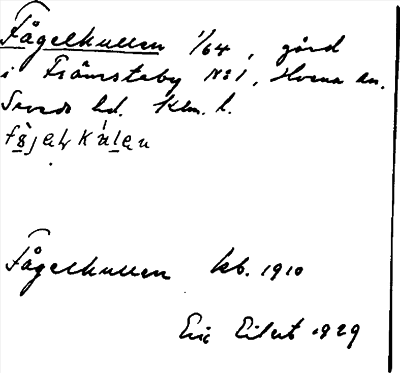 Fågelkullen 1/64, gård
i Främsteby No 1, Hvena sn.
Sevede hd. Klm. l.
Fågelkullen kb. 1910
Eric Eilert 1929